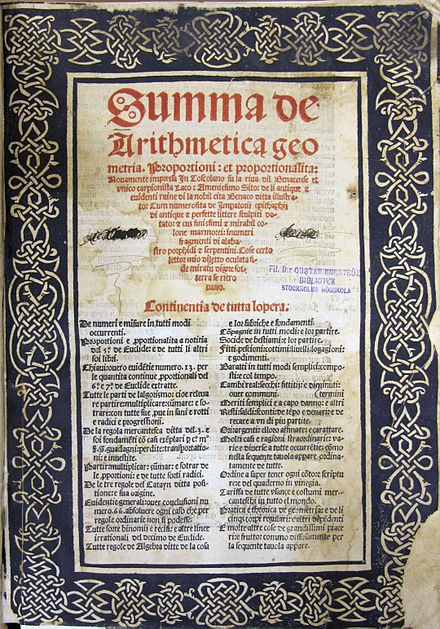 Summa de
Arithmetica geo
metria. Proportioni: et proportionalita:
Nouamente impressa In Toscolano su la riua dil Benacense et
vnico carpionista Laco: Amenissimo Sito: de li antique &
euidenti ruine di la nobil cita Benaco ditta illustra-
to: Cum numerosita de Imperatorij epithaphij
di antique & perfette littere sculpiti do-
tato: & cũs finissimi & mirabil co-
lone marmorei: inumeri
fragmenti di alaba-
stro porphidi & serpentini. Cose certo
lettor mio diletto oculata fi-
de miratu digne sot-
terra se ritro
uano.
FIL. D:r GUSTAF ENESTRÖMS
BIBLIOTEK
STOCKHOLMS HÖGSKOLA
Continentia de tutta lopera.
De numeri e misure in tutti modi
occurrenti.
Proportioni e ꝓportionalita a notitia
del 5° de Euclide e de tutti li altri
soi libri.
Chiaui ouero euidẽtie numero .13. per
le quantita continue ꝓportionali del
6° e 7° de Euclide extratte.
Tutte le parti de lalgorismo: cioe releua
re partir multiplicar: sũmar: e so-
trare con tutte sue ꝓue in sani e rotti
e radici e progressioni.
De la regola mercantesca ditta del .3. e
soi fondamẽti cõ casi exẽplari ꝑ
guadagni: perdite: transportatio-
ni: e inuestite.
Partir multiplicar: sũmar: e sotrar de
le ꝓportioni e de tutte sorti radici.
De le tre regole del Catayn ditta posi-
tione: e sua origine.
Euidentie generali: ouer conclusioni nu
mero .66. absoluere ogni caso che per
regole ordinarie non si podesse.
Tutte sorte binomij e recisi: e altre linee
irrationali del decimo de Euclide.
Tutte regole de Algebra ditte de la cosa
e lor fabriche e fondamenti.
Cõpagnie in tutti modi: e lor partire.
Socide de bestiami: e lor partire.
Fitti: pesoni: cottimi: liuelli: logagioni:
e godimenti.
Baratti in tutti modi semplici: compo-
sti: e col tempo.
Cambi reali: secchi: fittitij: e diminuti:
ouer communi. (termini
Meriti semplici e a capo danno: e altri
Resti: saldi: sconti: de tẽpo e denari: e de
recare a vn di piu partite.
Ori: argenti: e lloro affinare: e carattare.
Molti casi e ragioni straordinarie: va-
rie e diuerse a tutte occurrẽtie: cõmo
nella sequente tauola appare ordina-
tamente de tutte.
Ordine a saper tener ogni cõto e scriptu
re: e del quaderno in vinegia.
Tariffa de tutte vsançe e costumi mer-
canteschi in tutto el mondo.
Pratica e theorica de geometria: e de li
cinqz corpi regulari: e altri dependenti
E molte altre cose de grandissimi piace
ri: e frutto: commo diffusamente per
la sequente tauola appare.